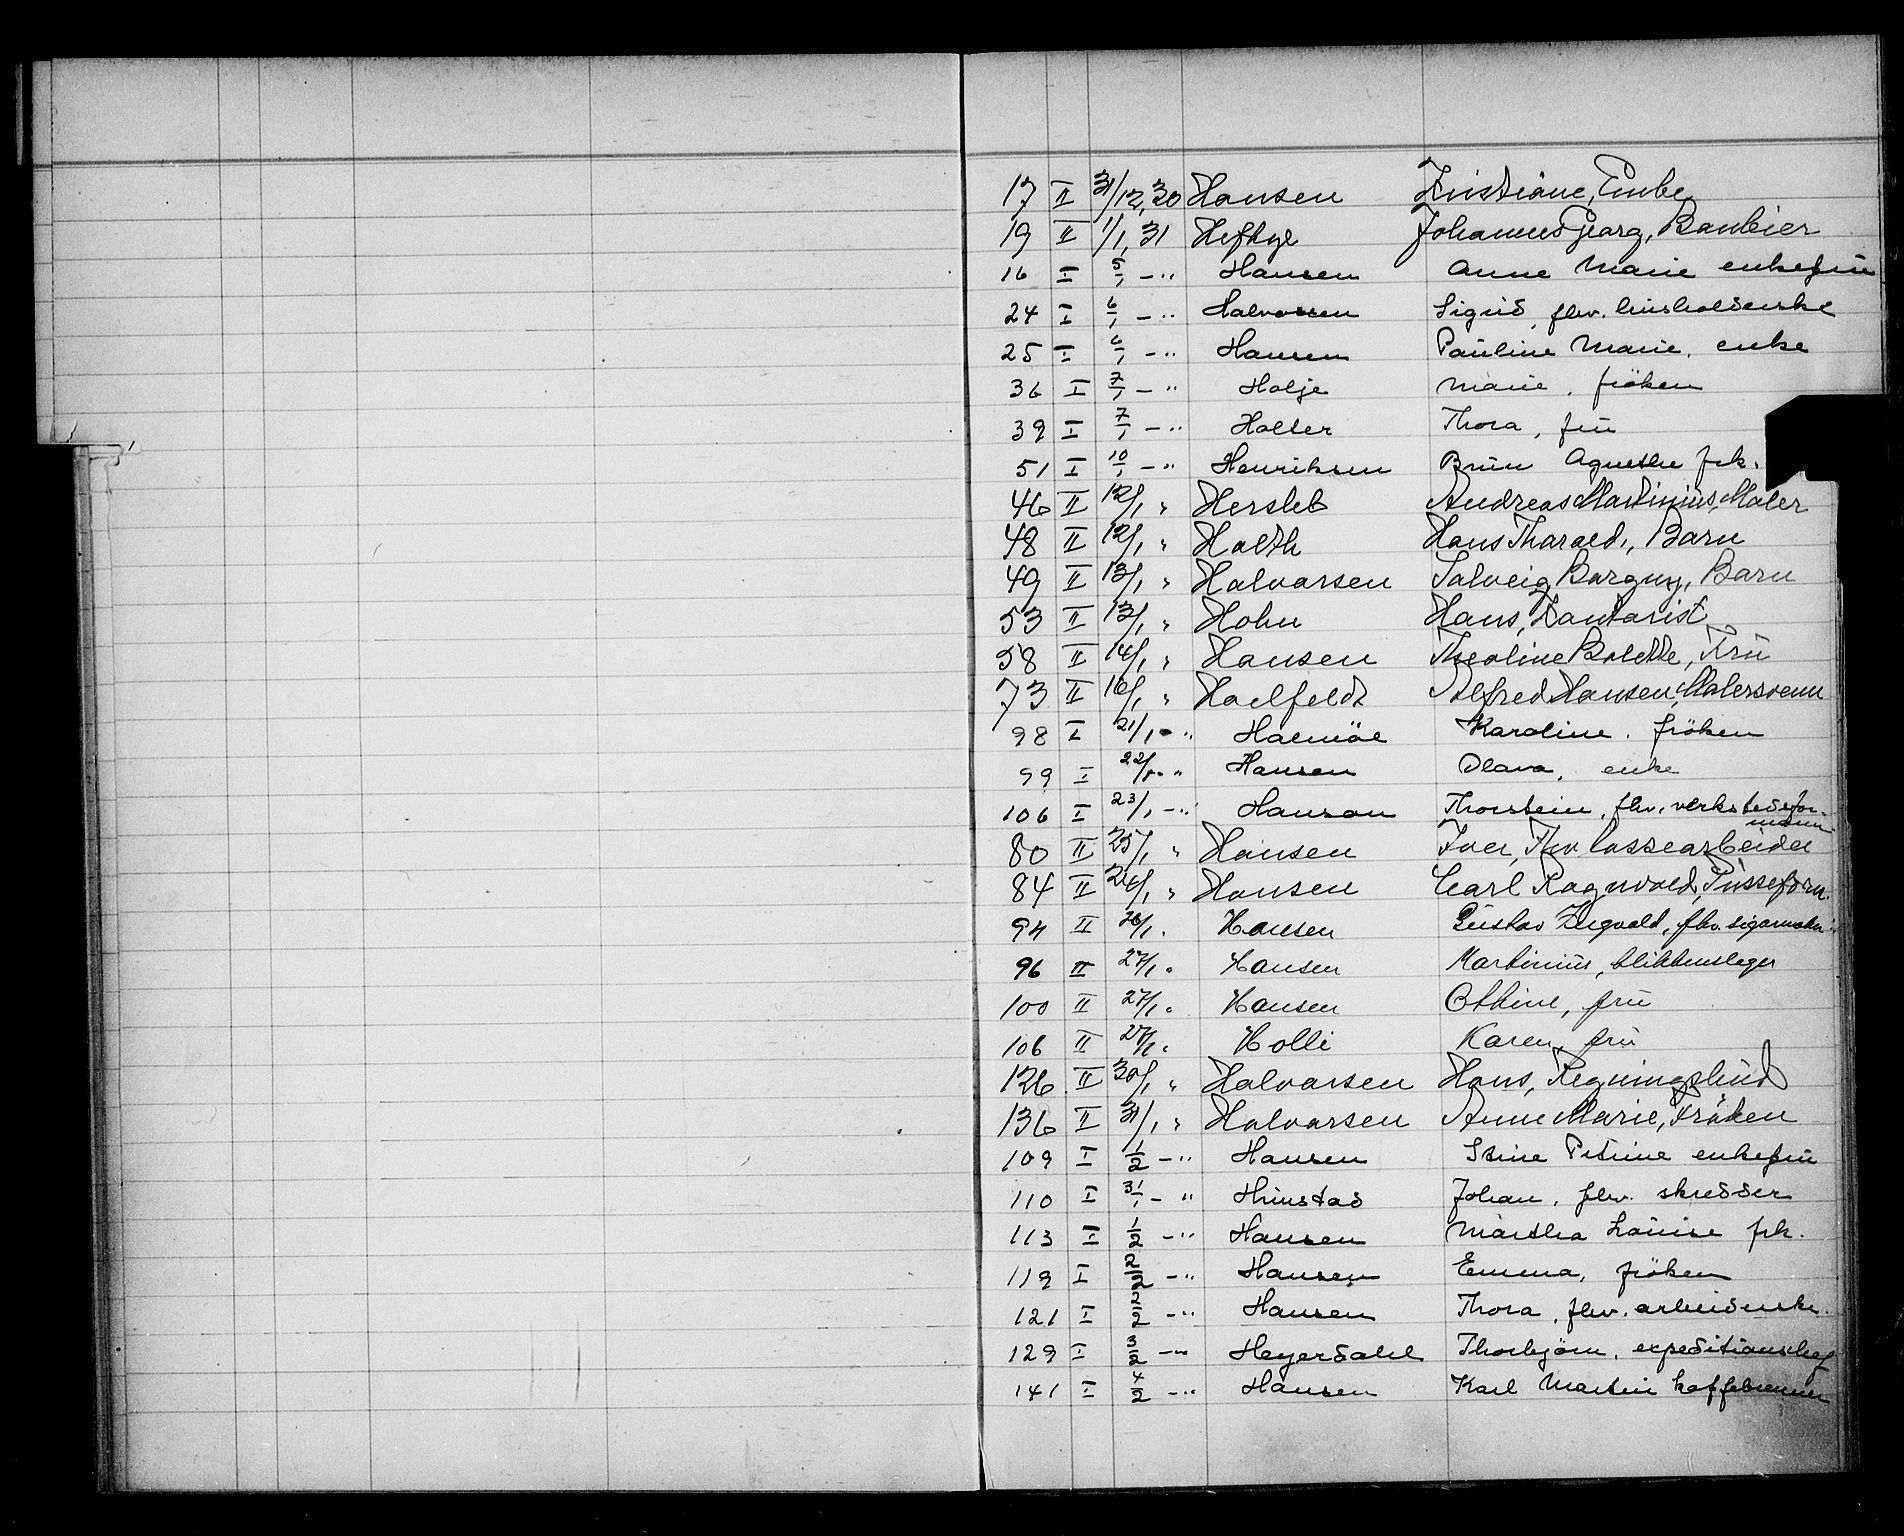 17 II 31/12,30 Hansen Kristiane, Enke
19 II 1/1, 31 Heftye Johannes Georg, Bankier
16 I 5/1 - " Hansen Anne Marie enkefrü
24 I 6/1 - " Halvorsen Sigrid, fhv. husholderske
25 I 6/1 - " Hansen Pauline Marie. enke
36 I 7/1 - " Holje Marie, frøken
39 I 7/1 - " Holter Thora, frü
51 I 10/1 - " Henriksen Brün Agnethe frk.
46 II 12/1 " Hersleb Andreas Martinius, Maler
48 II 12/1 " Holth Hans Tharald, Barn
49 II 13/1 " Halvarsen Solveig Bargny, Barn
53 II 13/1 " Hohn Hans, Kontorist
58 II 14/1 " Hansen Theoline Bolette, Frü
73 II 16/1 " Haelfeldt Alfred Hansen, Malersvenn
98 I 21/1 - " Karoline. frøken
99 I 22/1 - " Hansen Olava, enke
106 I 23/1 - " Hanson Thorstein, fhv. verkstedsfor-
mann
80 II 25/1 " Hansen Iver, Fhv lossearbeider
84 II 24/1 " Hansen Carl Ragnvald, Pusseform.
94 II 26/1 " Hansen Gustav Ingvald, fhv. sigarmaker
96 II 27/1 " Hansen Martinius, blikkenslager
100 II 27/1 " Hansen Othine, frü
106 II 27/1 " Holli Karen, frü
126 II 30/1 " Halvarsen Hans, Regningsbud
136 II 31/1 " Halvarsen Anne Marie, Frøken
109 I 1/2 - " Hansen Stine Petrine enkefrü
110 I 31/1 - " Hünstad Johan, fhv. skredder
113 I 1/2 - " Hansen Martha Louise frk.
119 I 2/2 - " Hansen Emma, frøken
121 I 2/2 - " Hansen Thora, fhv. arbeiderske
129 I 3/2 - " Heyerdahl Thorbjørn, expeditionschef
141 I 4/2 - " Hansen Karl Martin kaffebrenner